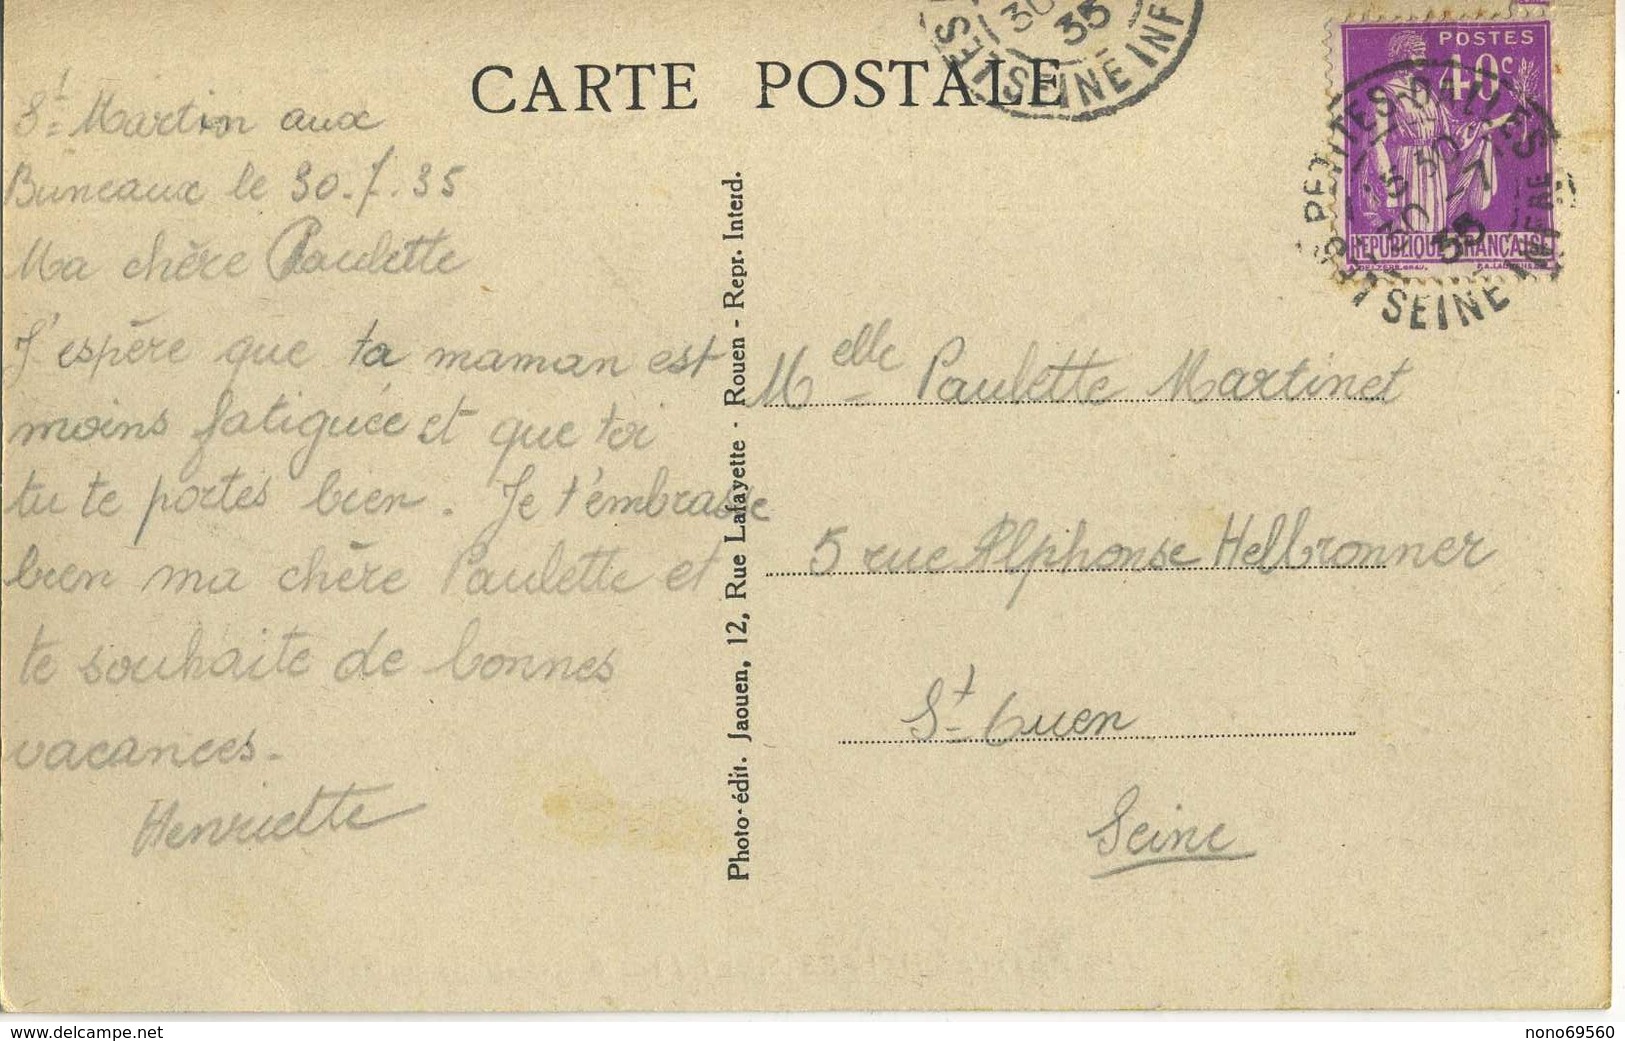 CARTE POSTALE
St Martin aux
Buneaux le 30.7.35
Ma chère Paulette
J'espère que ta maman est
moins fatiguée et que toi
tu te portes bien. Je t'embrasse
bien ma chère Paulette et
te souhaite de bonnes
vacances.
Henriette
Photo-édit. Jaouen, 12, Rue Lafayette - Rouen - Repr. Interd.
30
35
SEINE INF
POSTES
40c
REPUBLIQUE FRANÇAISE
LES PETITES-DALLES
15 30
30 -7
35
SEINE INFRE
Melle Paulette Martinet
5 rue Alphonse Helbronner
St Ouen
Seine
www.delcampe.net
nono69560